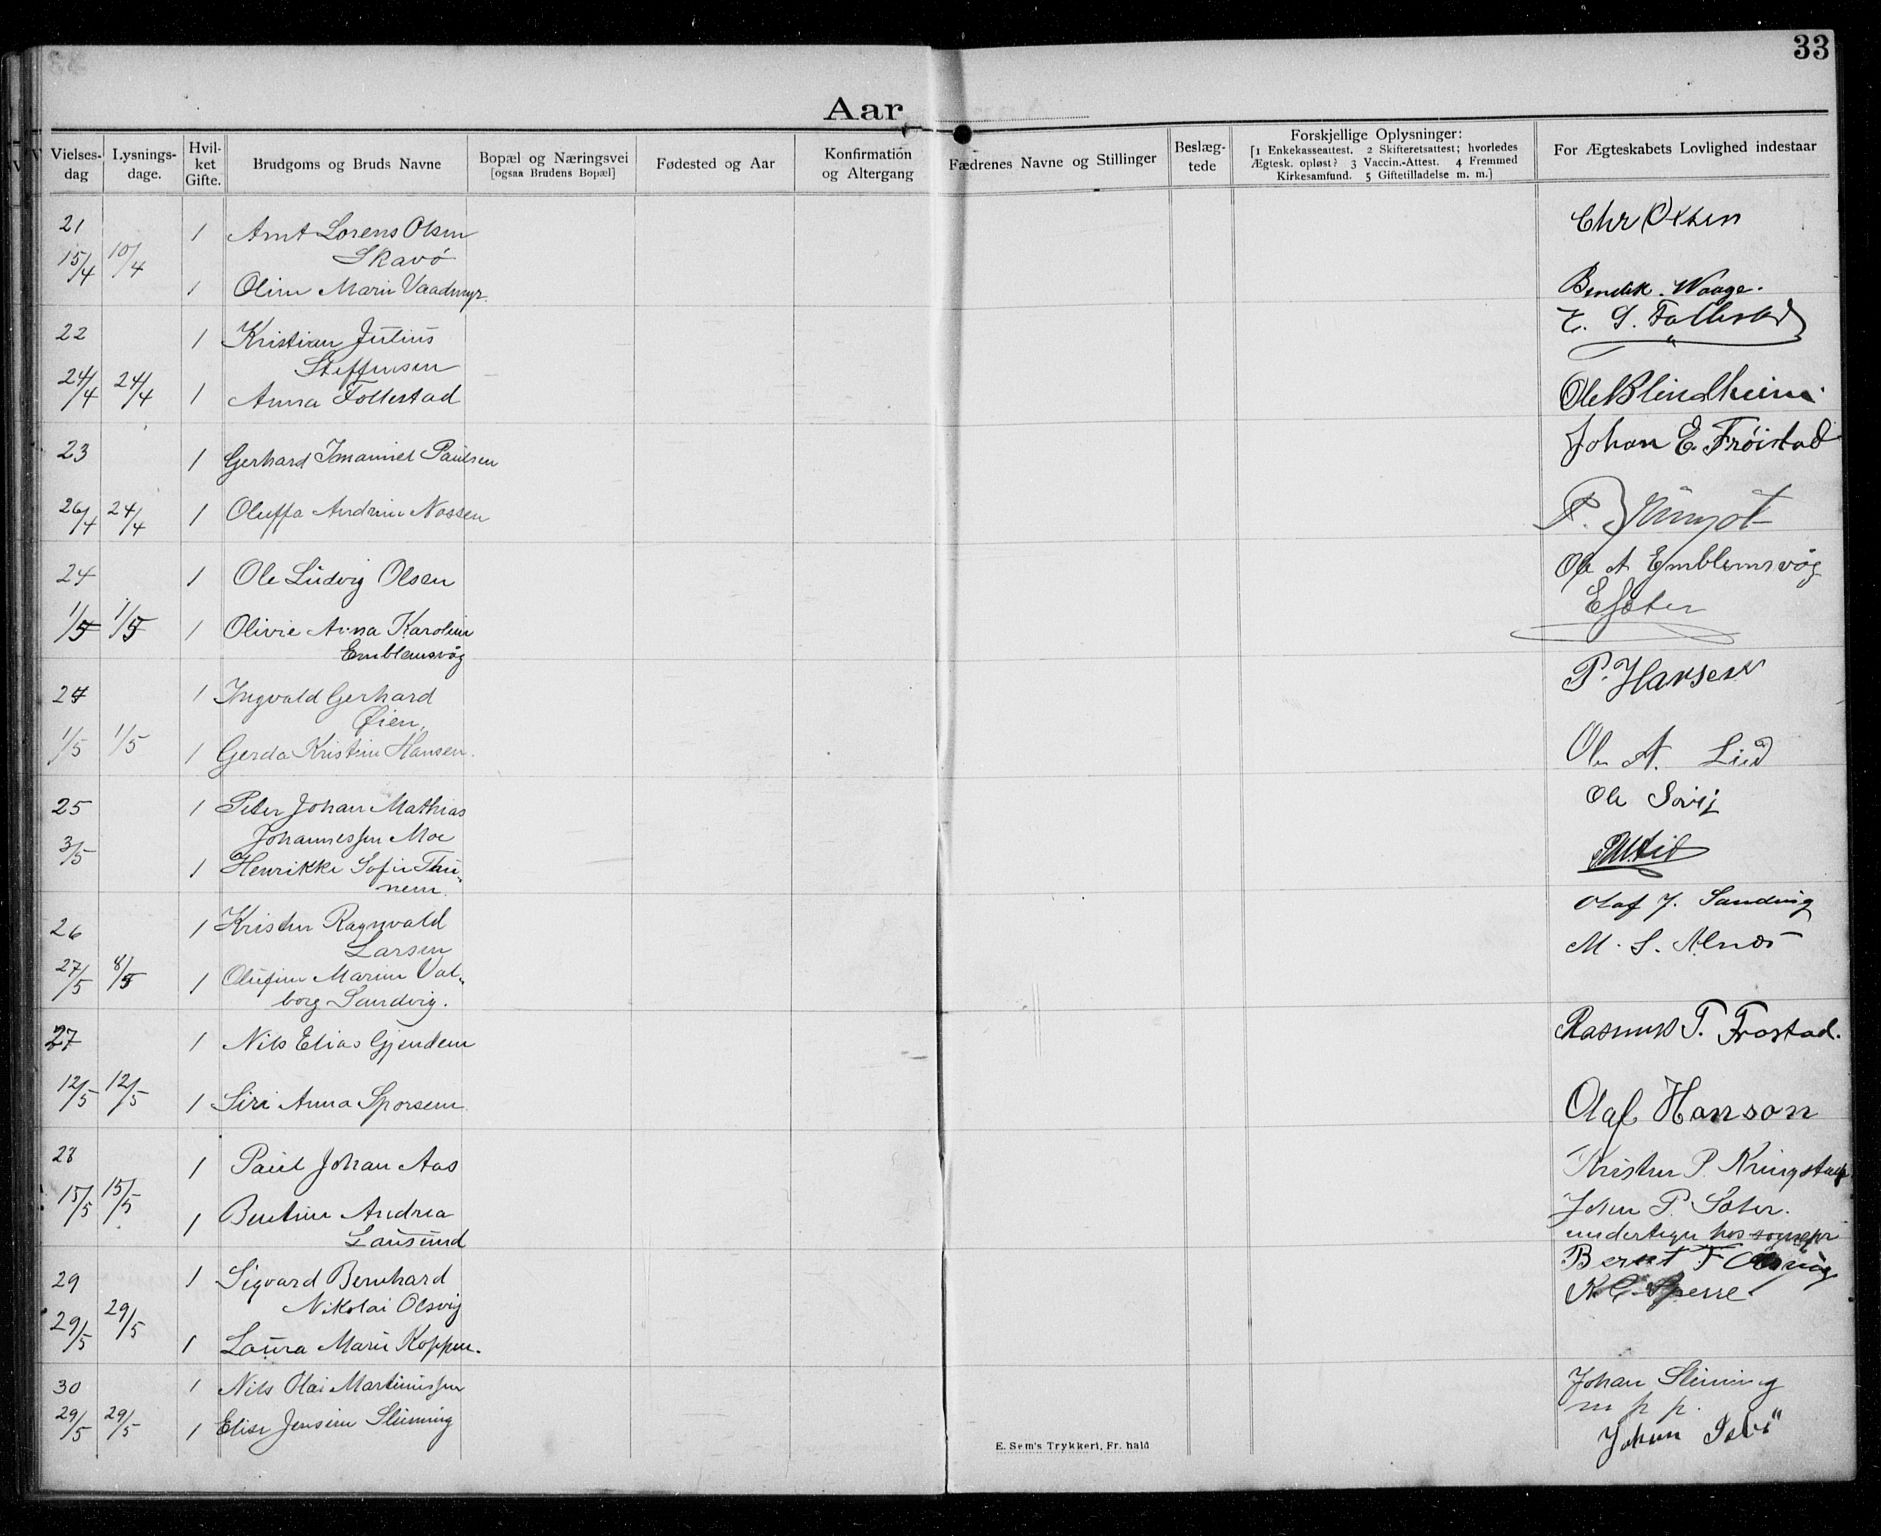 33
Aar
Vielses-dag
Lysnings-dage.
Hvil-ket Gifte.
Brudgoms og Bruds Navne
Bopæl og Næringsvei
[ogsaa Brudens Bopæl]
Fødested og Aar
Konfirmation og Altergang
Fædrenes Navne og Stillinger
Beslæg-tede
Forskjellige Oplysninger:
[1 Enkekasseattest. 2 Skifteretsattest; hvorledes
Ægtesk. opløst? 3 Vaccin.-Attest. 4 Fremmed
Kirkesamfund. 5 Giftetilladelse m. m.]
For Ægteskabets Lovlighed indestaar
21 1 Arnt Lorens Olsen Chr Olsen
15/4 10/4 Skavø
1 Oline Marie Vaadmyr. Bendik. Waage.
E. S. Follestad
22 1 Kristian Julius
Steffensen
24/4 24/4 1 Anna Follestad Ole Blindheim.
Johan E. Frøistad
23 1 Gerhard Imanuel Paulsen
26/4 24/4 1 Oluffa Andrine Nossen P.
24 1 Ole Ludvig Olsen Ole A Emblemsvåg
E Sæter
1/5 1/5 1 Olivie Anna Karoline
Emblemsvåg
24 1 Ingvald Gerhard P. Hansen
Øien.
1/5 1/5 1 Gerda Kristine Hansen. Ole A. Lied
25 1 Peter Johan Mathias Ole
Johannessen Moe
3/5 1 Henrikke Sofie Thu-
nem.
26 1 Kristen Ragnvald Olaf J. Sandvig
Larsen M. S. Alnæs
27/5 8/5 1 Olufine Marine Val-
borg Sandvig.
27 1 Nils Elias Gjendem Rasmus T. Frostad.
12/5 12/5 1 Siri Anna Sporsem Olaf Hanson
28 1 Paul Johan Aas Kristen P. Kringstad
15/5 15/5 1 Bentine Andrea Johan P. Sæter.
Lausund undertegn hos sognepr
29 1 Sigvard Bernhard Bernt F
Nikolai Olsvig Sperre
29/5 29/5 1 Laura Marie Koppen.
30 1 Nils Olai Martinussen Johan Slinning
m p p.
29/5 29/5 1 Elise Jensine Slinning Johan
E. Sem's Trykkeri, Fr. hald